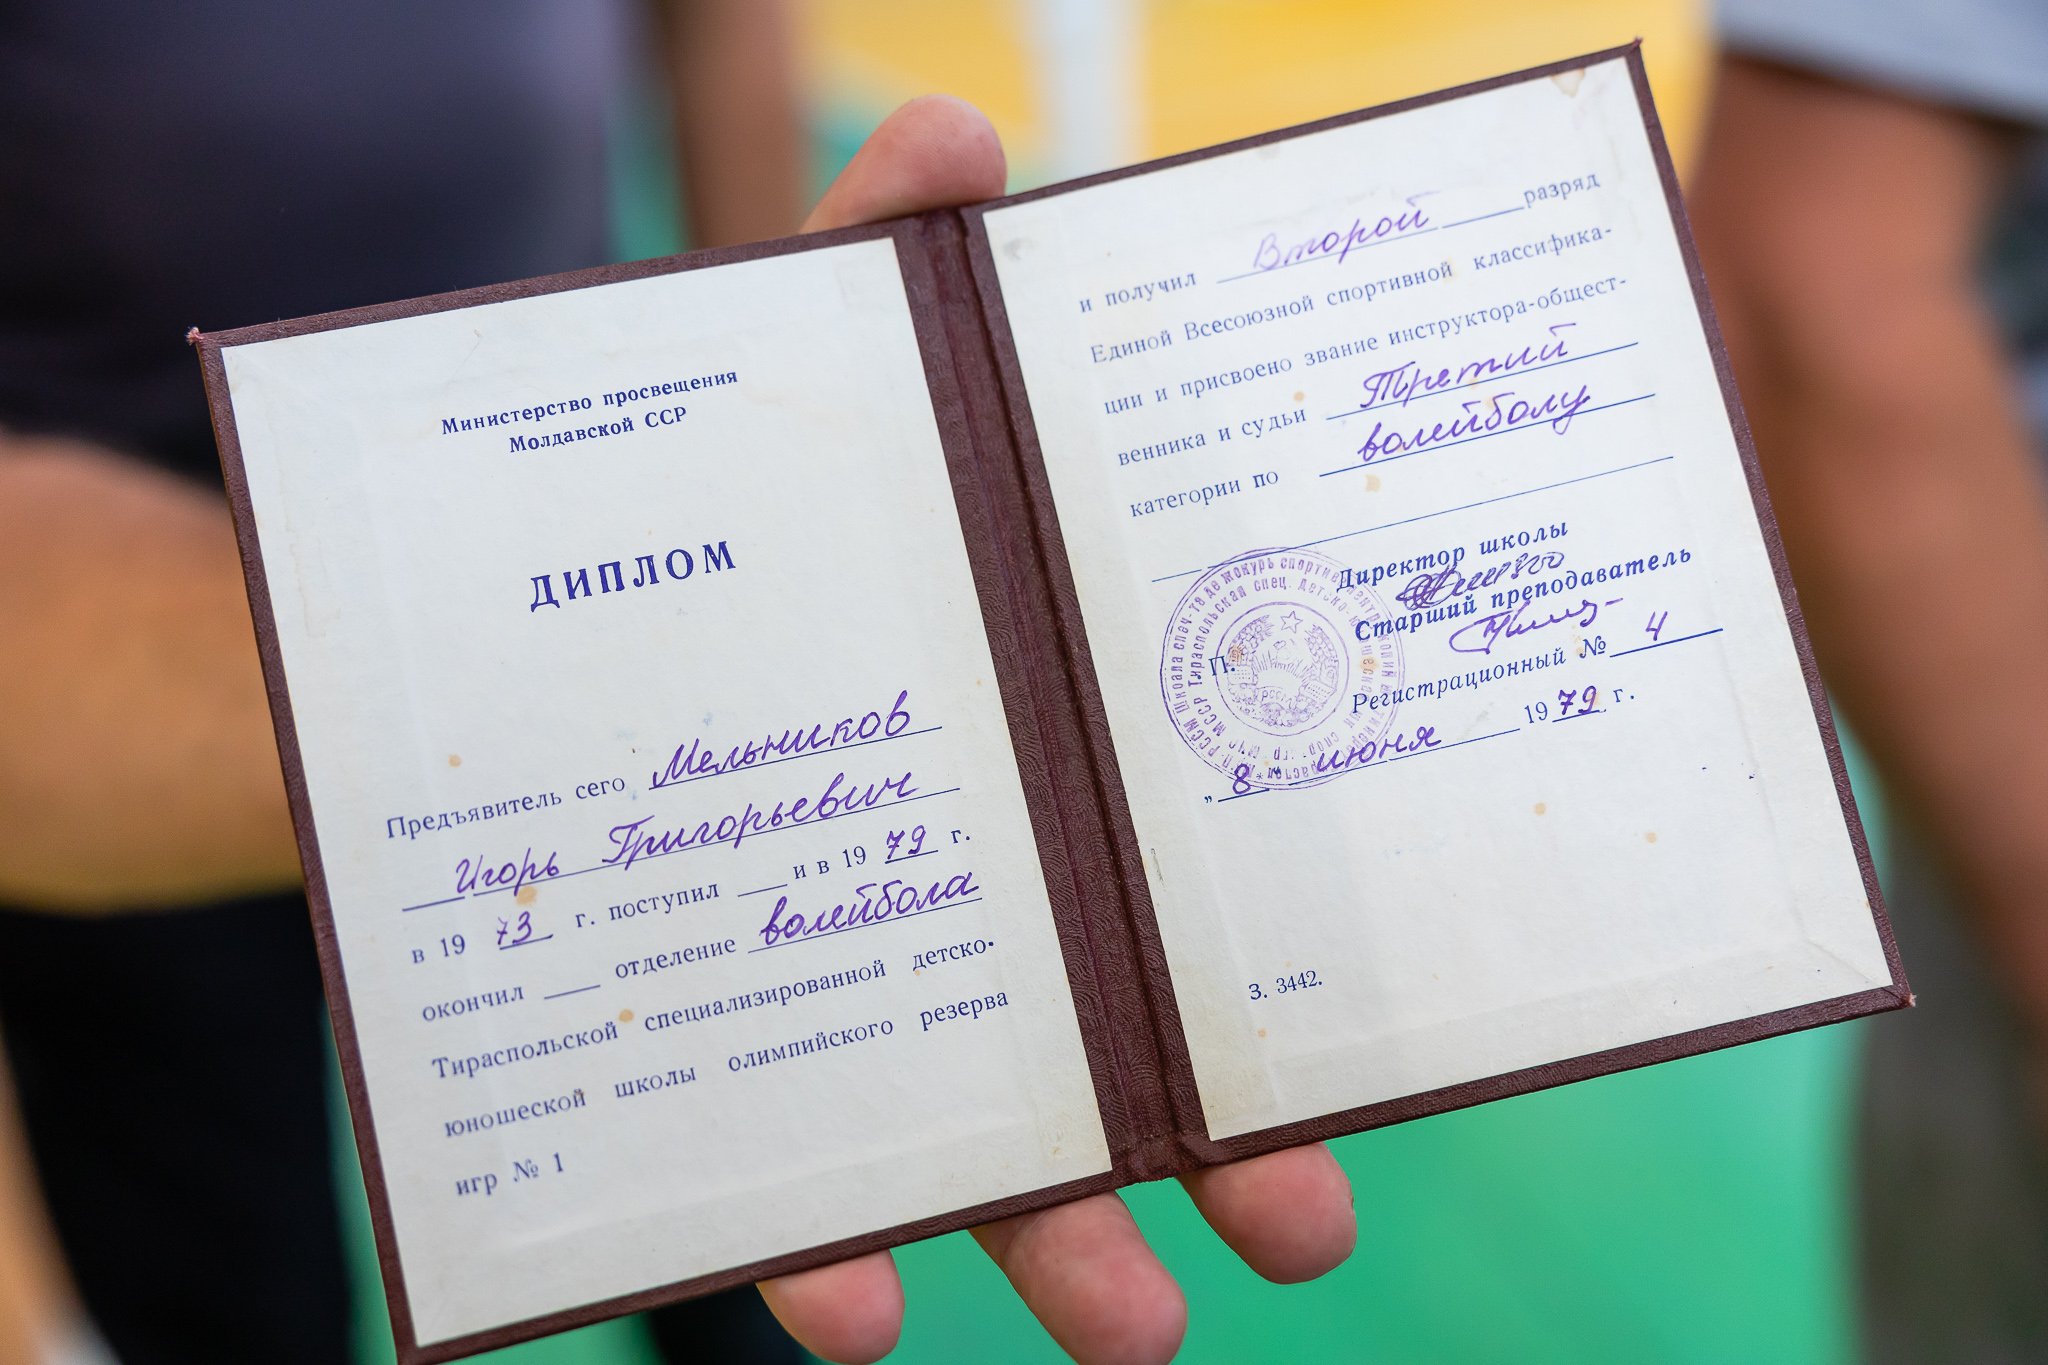 Министерство просвещения
Молдавской ССР
ДИПЛОМ
Предъявитель сего Мельников
Игорь Григорьевич
в 19 73 г. поступил и в 19 79 г.
окончил отделение волейбола
Тираспольской специализированной детско-
юношеской школы олимпийского резерва
игр № 1
и получил Второй разряд
Единой Всесоюзной спортивной классифика-
ции и присвоено звание инструктора-общест-
венника и судьи Третий
категории по волейболу
Директор школы
Старший преподаватель
П.
Регистрационный № 4
„8“ июня 1979 г.
З. 3442.
МССР Тираспольская спец. детско-
РССМ Школа спец.
РССМ